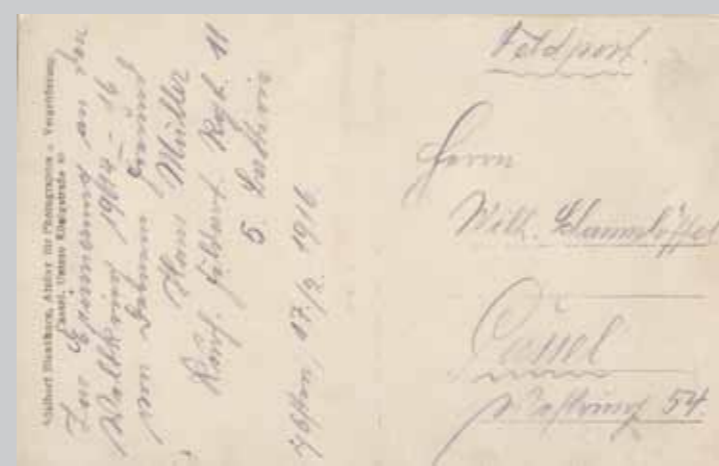 Adalbert Blanthorn, Atelier für Photographie u. Vergrößerung
Cassel, Untere Königstraße
Zur Erinnerung an den
Weltkrieg 1914 - 16
von Deinem Freund
Hans Müller
Feldart. Rgt. 11
5. Batterie
17/2. 1916.
Feldpost.
Herrn
Wilh.
Cassel
54.